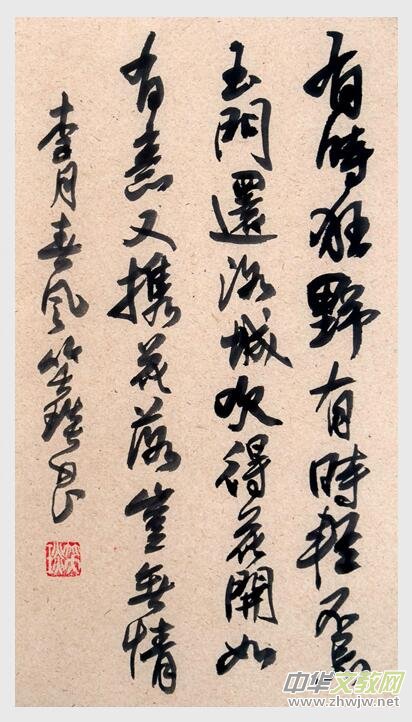 有時狂野有時輕不
玉門還洛城吹得花開如
有意又携花落豈無情
李月春風
中华文教网
www.zhwjw.net